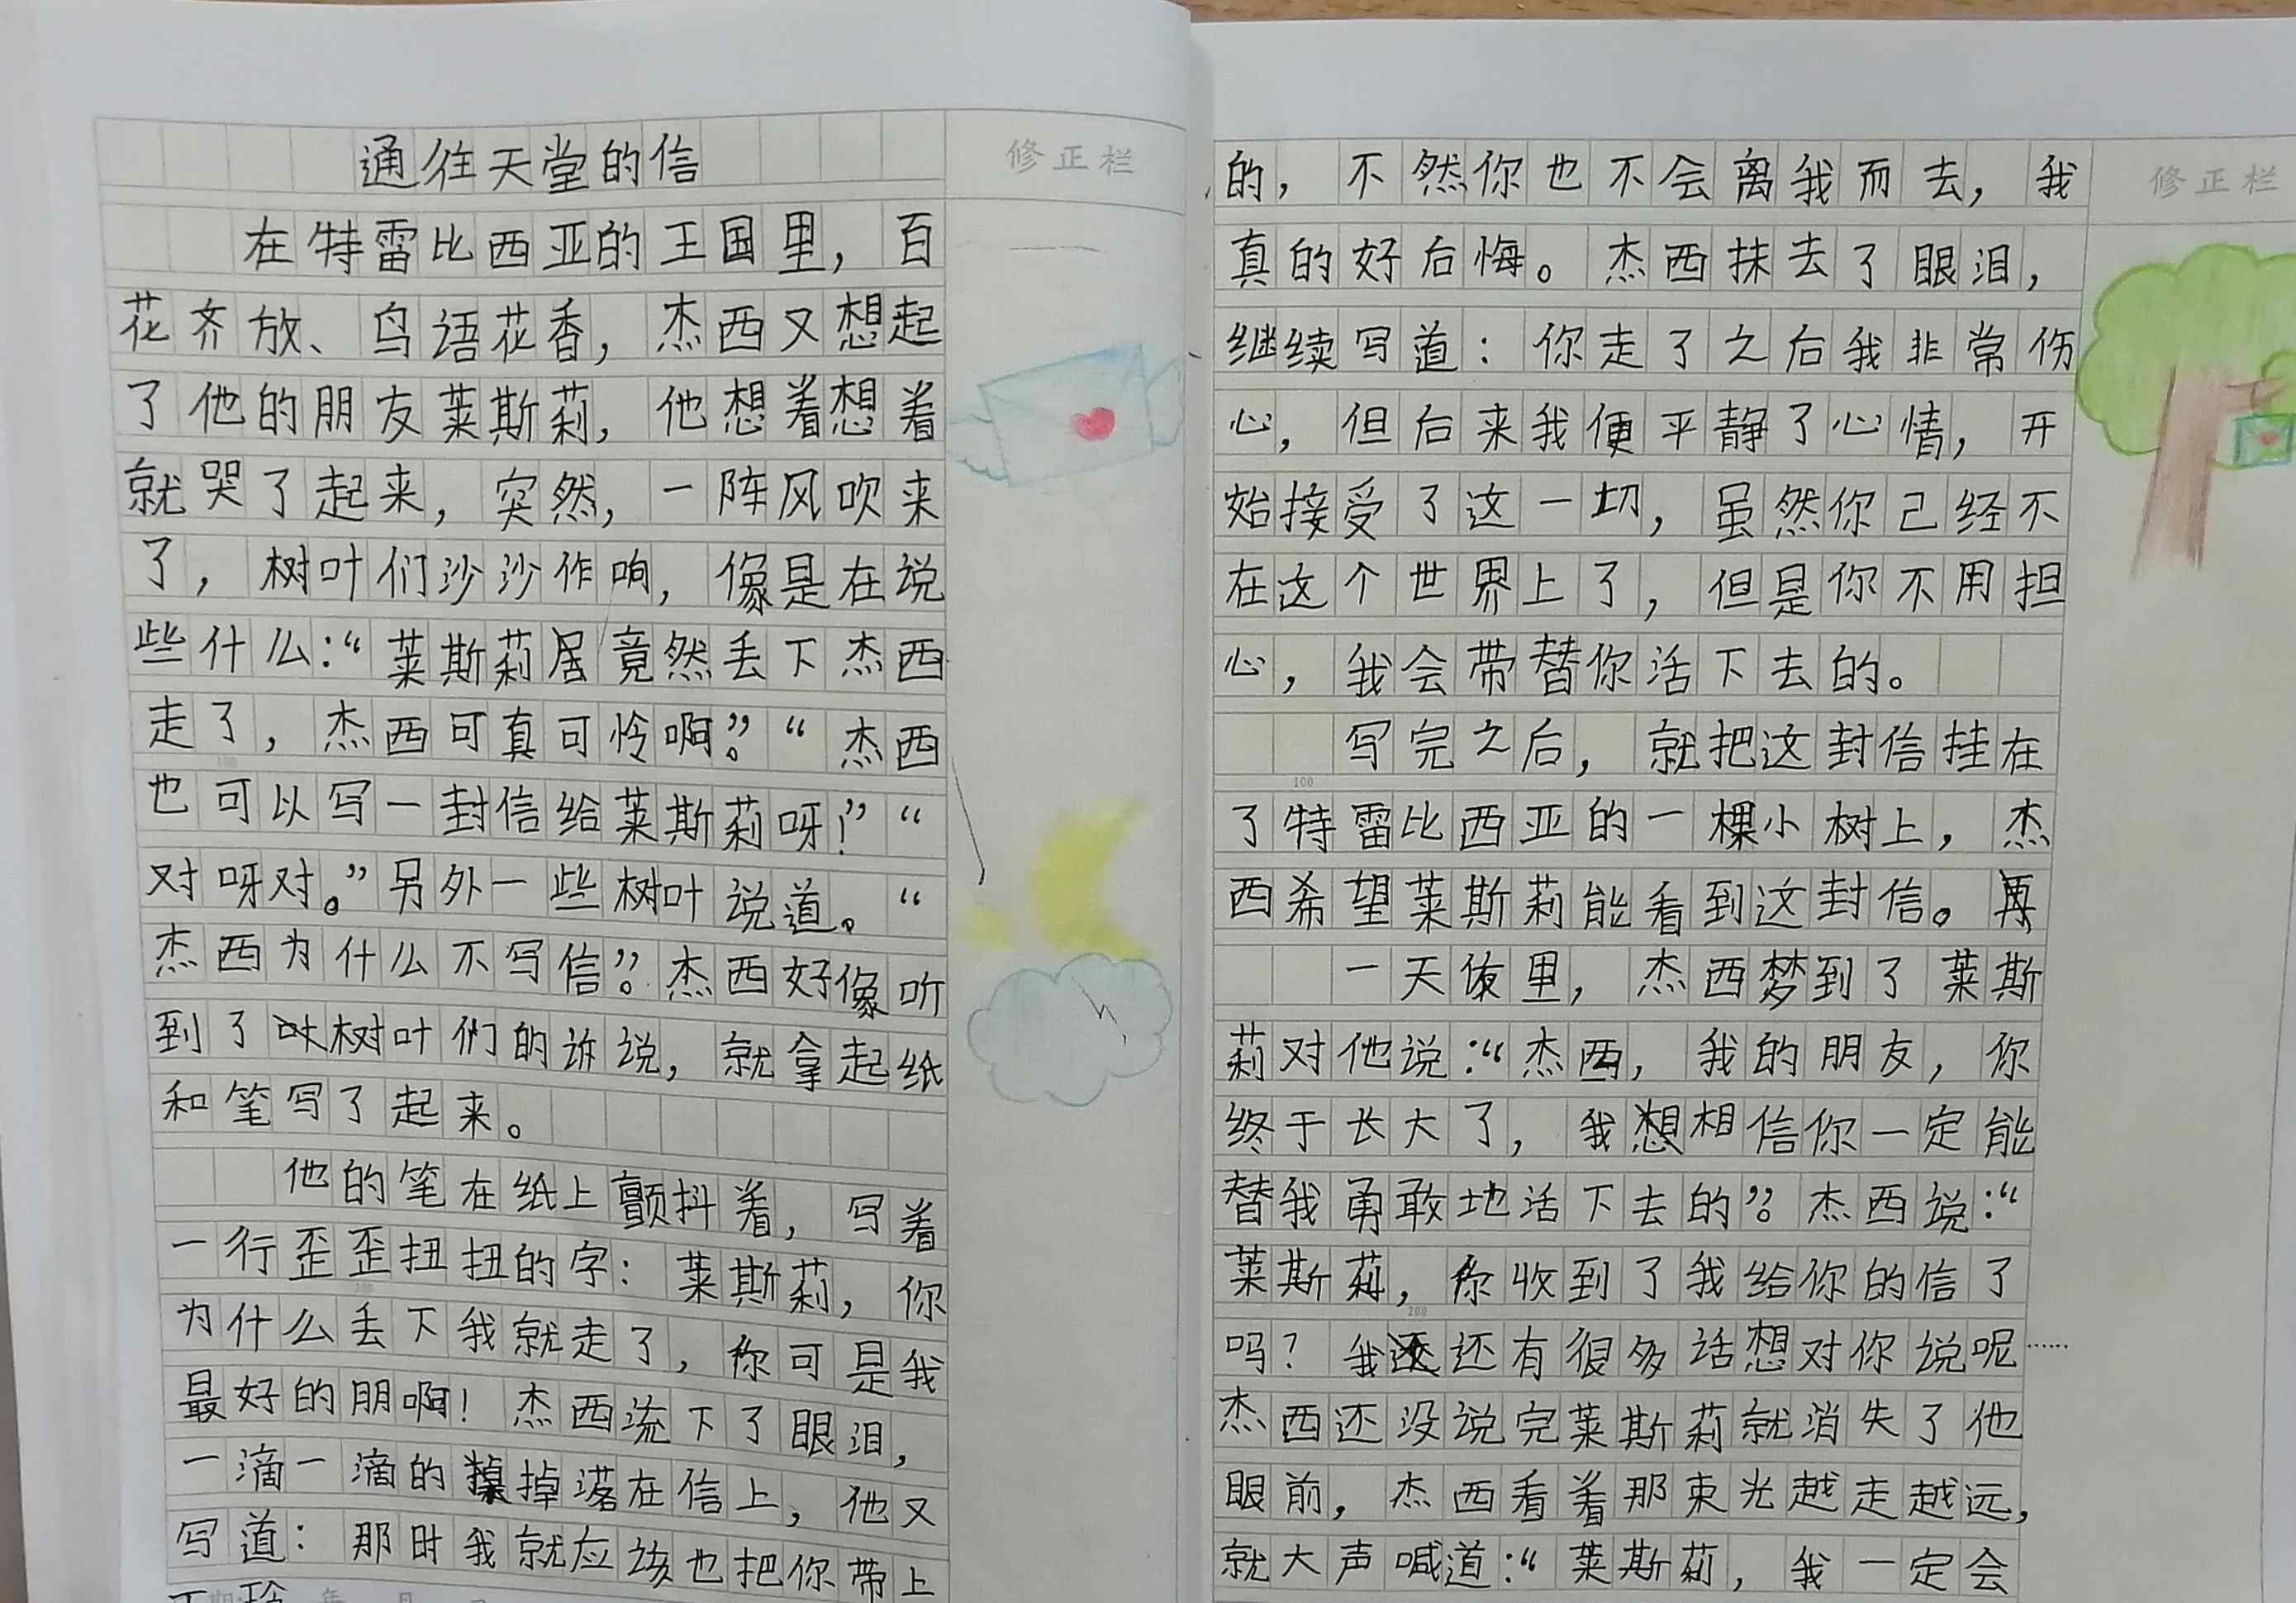 通往天堂的信
修正栏
在特雷比西亚的王国里，百
花齐放、鸟语花香，杰西又想起
了他的朋友莱斯莉，他想着想着
就哭了起来，突然，一阵风吹来
了，树叶们沙沙作响，像是在说
些什么：“莱斯莉居竟然丢下杰西
走了，杰西可真可怜啊”。“杰西
也可以写一封信给莱斯莉呀！”“
对呀对。”另外一些树叶说道。“
杰西为什么不写信”。杰西好像听
到了树叶们的诉说，就拿起纸
和笔写了起来。
他的笔在纸上颤抖着，写着
一行歪歪扭扭的字：莱斯莉，你
为什么丢下我就走了，你可是我
最好的朋啊！杰西流下了眼泪，
一滴一滴的掉落在信上，他又
写道：那时我就应该也把你带上
的，不然你也不会离我而去，我
修正栏
真的好后悔。杰西抹去了眼泪，
继续写道：你走了之后我非常伤
心，但后来我便平静了心情，开
始接受了这一切，虽然你己经不
在这个世界上了，但是你不用担
心，我会带替你活下去的。
写完之后，就把这封信挂在
100
了特雷比西亚的一棵小树上，杰
西希望莱斯莉能看到这封信。再
一天夜里，杰西梦到了莱斯
莉对他说：“杰西，我的朋友，你
终于长大了，我相信你一定能
替我勇敢地活下去的”。杰西说：“
莱斯莉，你收到了我给你的信了
200
吗？我还有很多话想对你说呢……
杰西还没说完莱斯莉就消失了他
眼前，杰西看着那束光越走越远，
就大声喊道：“莱斯莉，我一定会